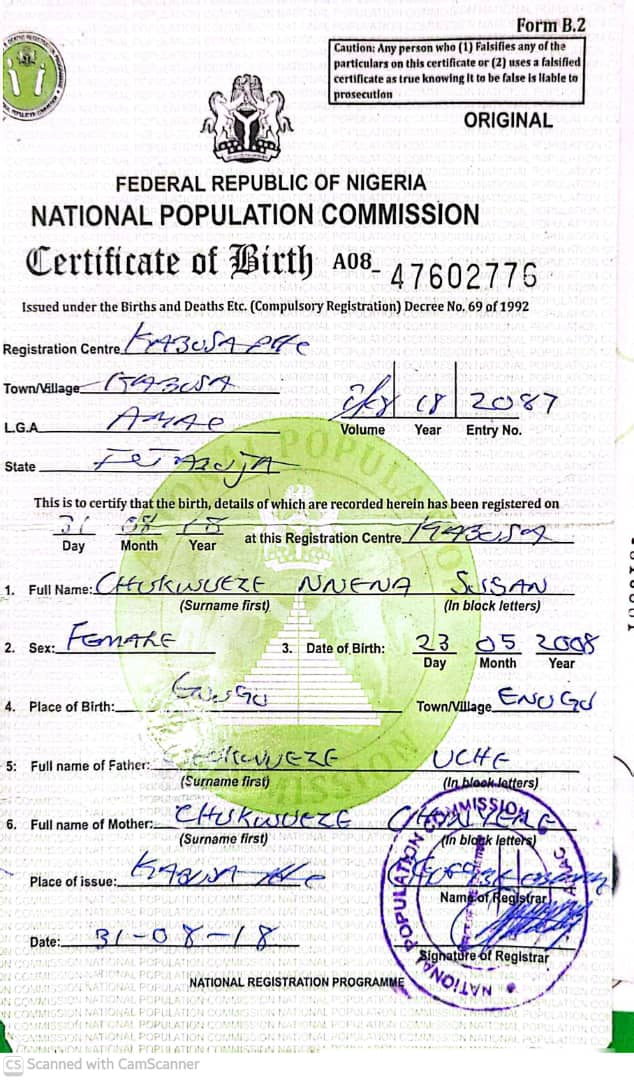 Form B.2
Caution: Any person who (1) Falsifies any of the
particulars on this certificate or (2) uses a falsified
certificate as true knowing it to be false is liable to
prosecution
ORIGINAL
FEDERAL REPUBLIC OF NIGERIA
NATIONAL POPULATION COMMISSION
Certificate of Birth A08- 47602776
Issued under the Births and Deaths Etc. (Compulsory Registration) Decree No. 69 of 1992
Registration Centre KABUSA PHC
Town/Village KABUSA
L.G.A AMAC
18 2087
Volume Year Entry No.
State FCT ABUJA
This is to certify that the birth, details of which are recorded herein has been registered on
31 08 18 at this Registration Centre KABUSA
Day Month Year
1. Full Name: CHUKWUEZE NNENA SUSAN
(Surname first) (In block letters)
2. Sex: FEMALE 3. Date of Birth: 23 05 2008
Day Month Year
4. Place of Birth: ENUGU Town/Village ENUGU
5: Full name of Father: CHUKWUEZE UCHE
(Surname first) (In block letters)
6. Full name of Mother: CHUKWUEZE
(Surname first) (In block letters)
Place of issue: KABUSA PHC
Name of Registrar
Date: 31-08-18
Signature of Registrar
NATIONAL REGISTRATION PROGRAMME
NATIONAL POPULATION COMMISSION
CS Scanned with CamScanner